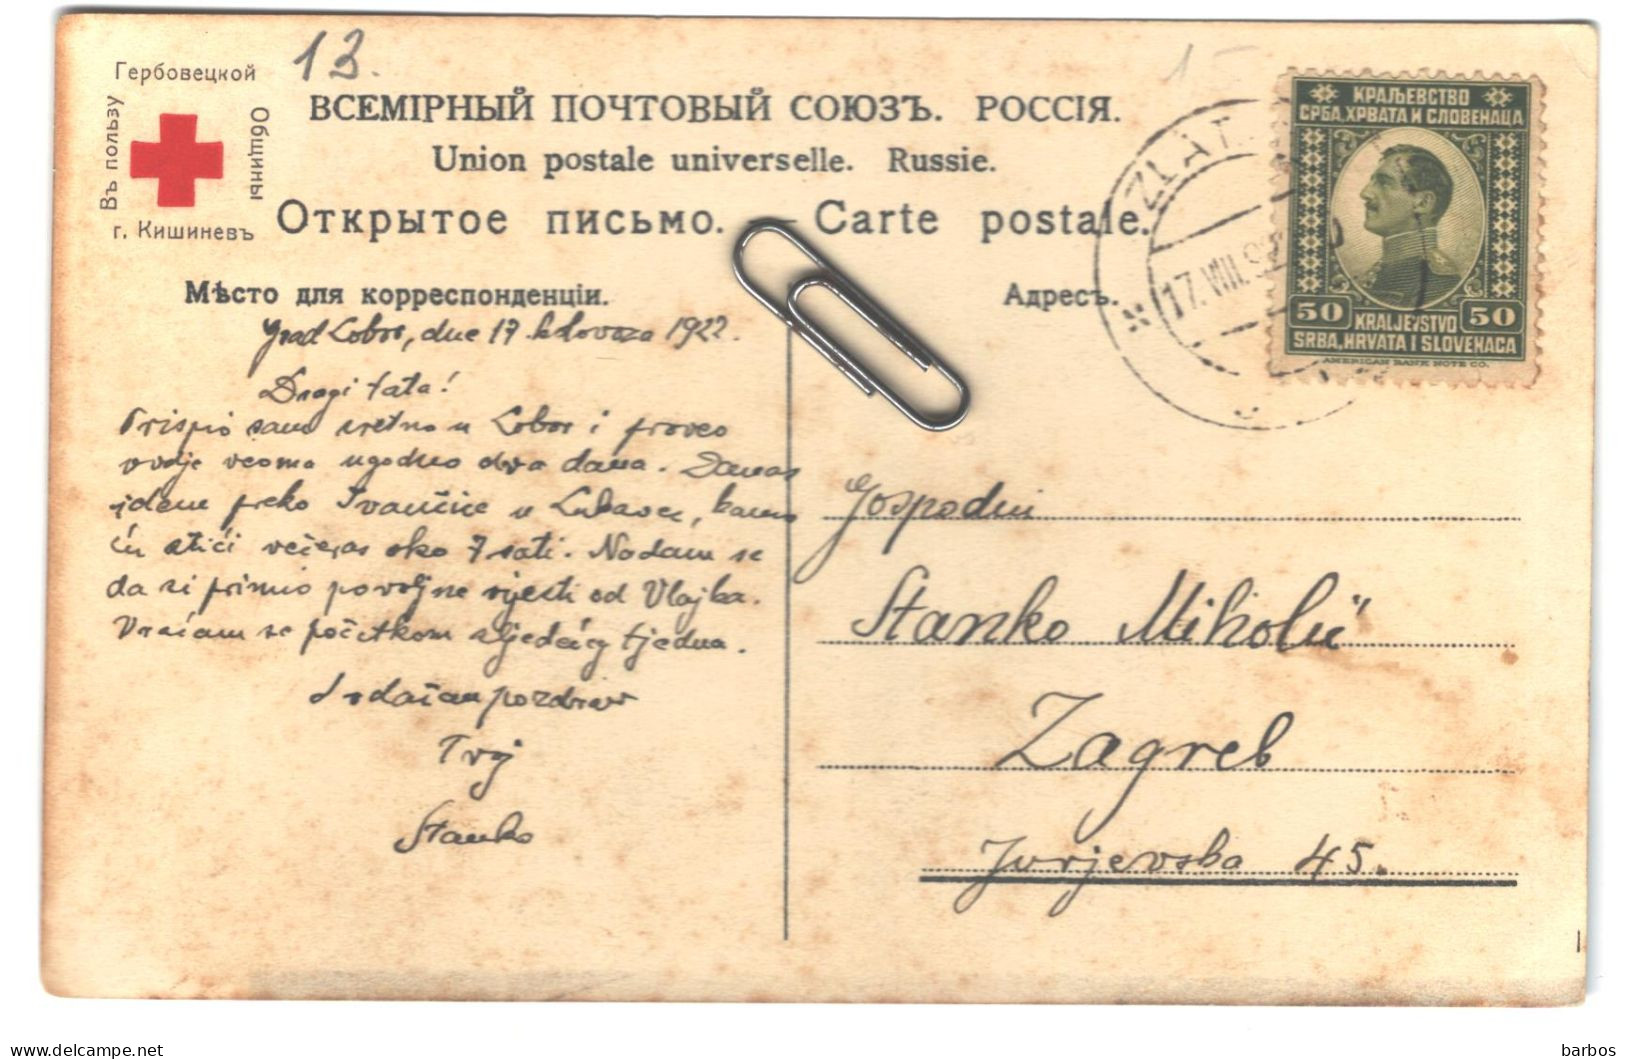 13.
1-
Гербовецкой
Въ пользу
Общины
г. Кишиневъ
ВСЕМІРНЫЙ ПОЧТОВЫЙ СОЮЗЪ. РОССІЯ.
Union postale universelle. Russie.
Открытое письмо. Carte postale.
Мѣсто для корреспонденціи.
Адресъ.
КРАЉЕВСТВО
СРБА, ХРВАТА И СЛОВЕНАЦА
50 KRALJEVSTVO 50
SRBA, HRVATA I SLOVENACA
AMERICAN BANK NOTE CO.
ZLAT
17.VIII.92
Grad Lobor, dne 17. kolovoza 1922.
Dragi tata!
Prispio sam sretno u Lobor i proveo
ovdje veoma ugodno dva dana. Danas
idem preko Ivančice u Lukavec, kamo
ću stići večeras oko 7 sati. Nadam se
da si primio povoljne vijesti od Vlajka.
Vraćam se početkom sljedećeg tjedna.
Srdačan pozdrav
Tvoj
Stanko
Gospodin
Stanko Miholić
Zagreb
Jurjevska 45.
delcampe.net
barbos